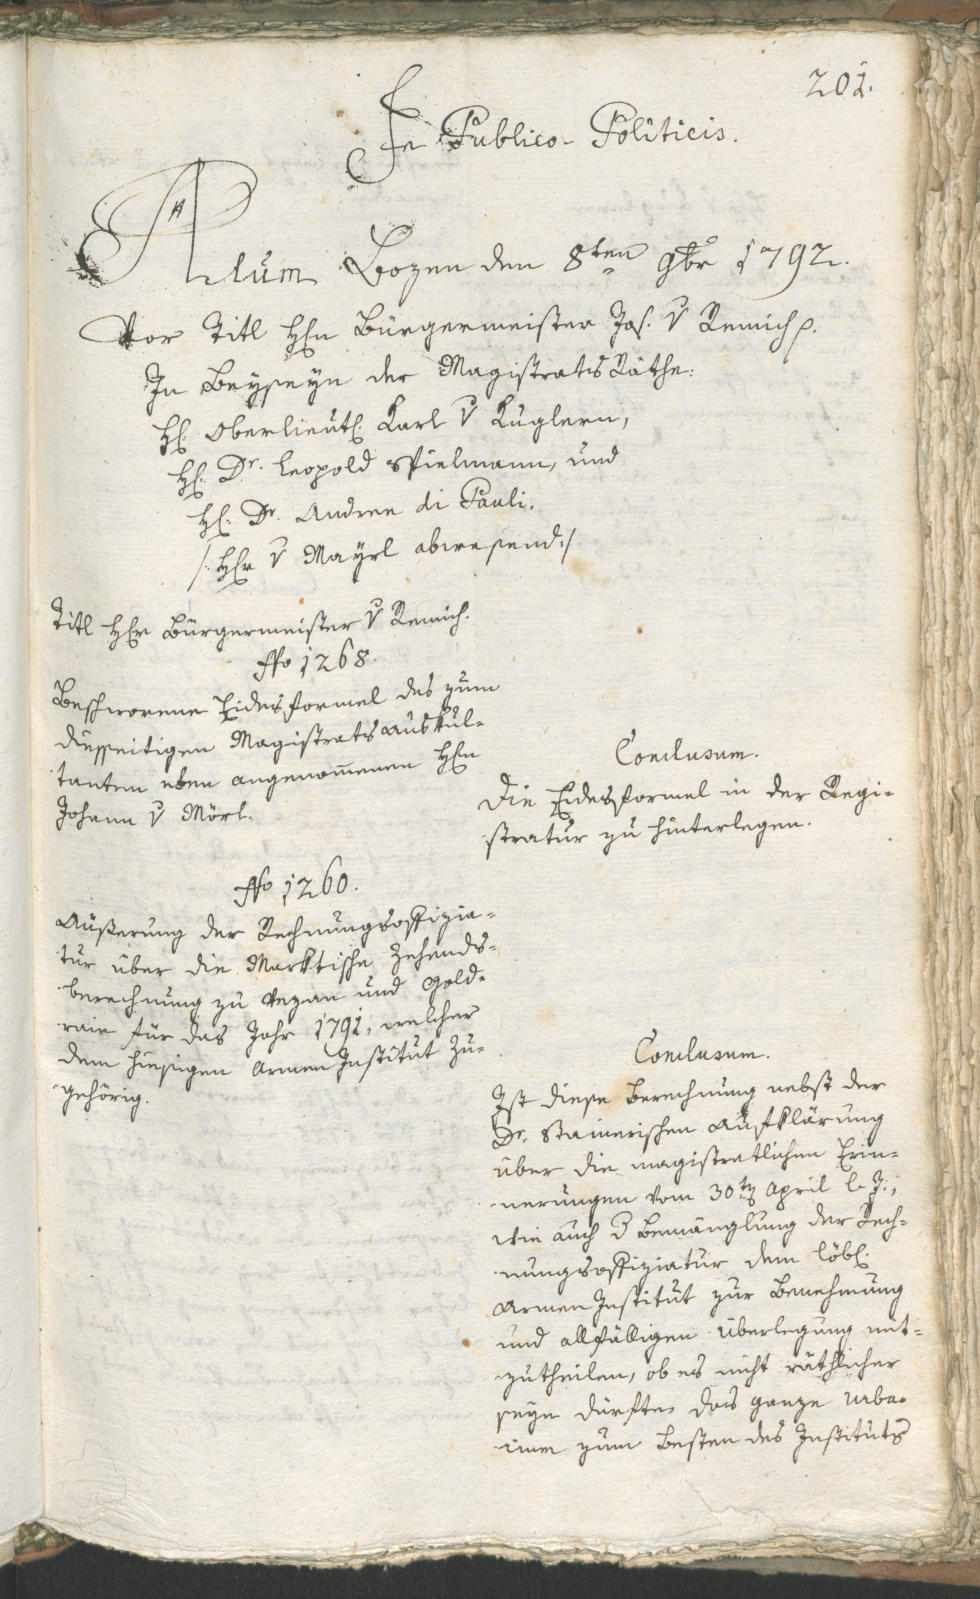 201.
In Publico-Politicis.
Actum Bozen den 8ten 9br 1792.
Vor Titl Hrn Bürgermeister Jos. v Remich p.
In Beyseyn der Magistrats Räthe:
H: Oberlieut: Karl v Kuglern,
H: Dr. Leopold Spielmann, und
H: Dr. Andree di Pauli.
/: Hr v Mayrl abwesend :/
Titl Hr Bürgermeister v Remich.
No 1268.
Beschworene Eidesformel des zum
diesseitigen Magistrats Auskul-
tanten eben angenommenen Hrn
Johann v Mörl.
Conclusum.
Die Eidesformel in der Regi-
stratur zu hinterlegen.
No 1260.
Äußerung der Rechnungsoffizia-
tur über die Marktische Zehends-
berechnung zu Vezan und Gold-
rain für das Jahr 1791, welcher
dem hiesigen Armen Institut zu-
gehörig.
Conclusum.
Ist diese Berechnung nebst der
Dr. Stainerischen Aufklärung
über die magistratlichen Erin-
nerungen vom 30ten April l. J.,
wie auch d Bemänglung der Rech-
nungsoffiziatur dem löbl:
Armen Institut zur Benehmung
und allfälligen Überlegung mit-
zutheilen, ob es nicht räthlicher
seyn dürfte, das ganze Urba-
rium zum Besten des Instituts